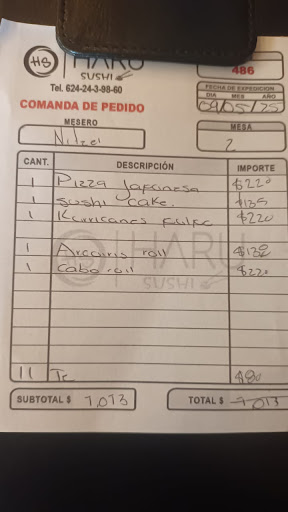 HS HARU
SUSHI
486
Tel. 624-24-3-98-60
FECHA DE EXPEDICION
DIA MES AÑO
COMANDA DE PEDIDO
09/05/25
MESERO
MESA
2
CANT. DESCRIPCIÓN IMPORTE
1 Pizza Japanesa $220
1 Sushi cake. $135
1 Kurricanes $220
1 Arcoiris roll
1 Cabo roll $220
HARU
SUSHI
11 Te
SUBTOTAL $ TOTAL $